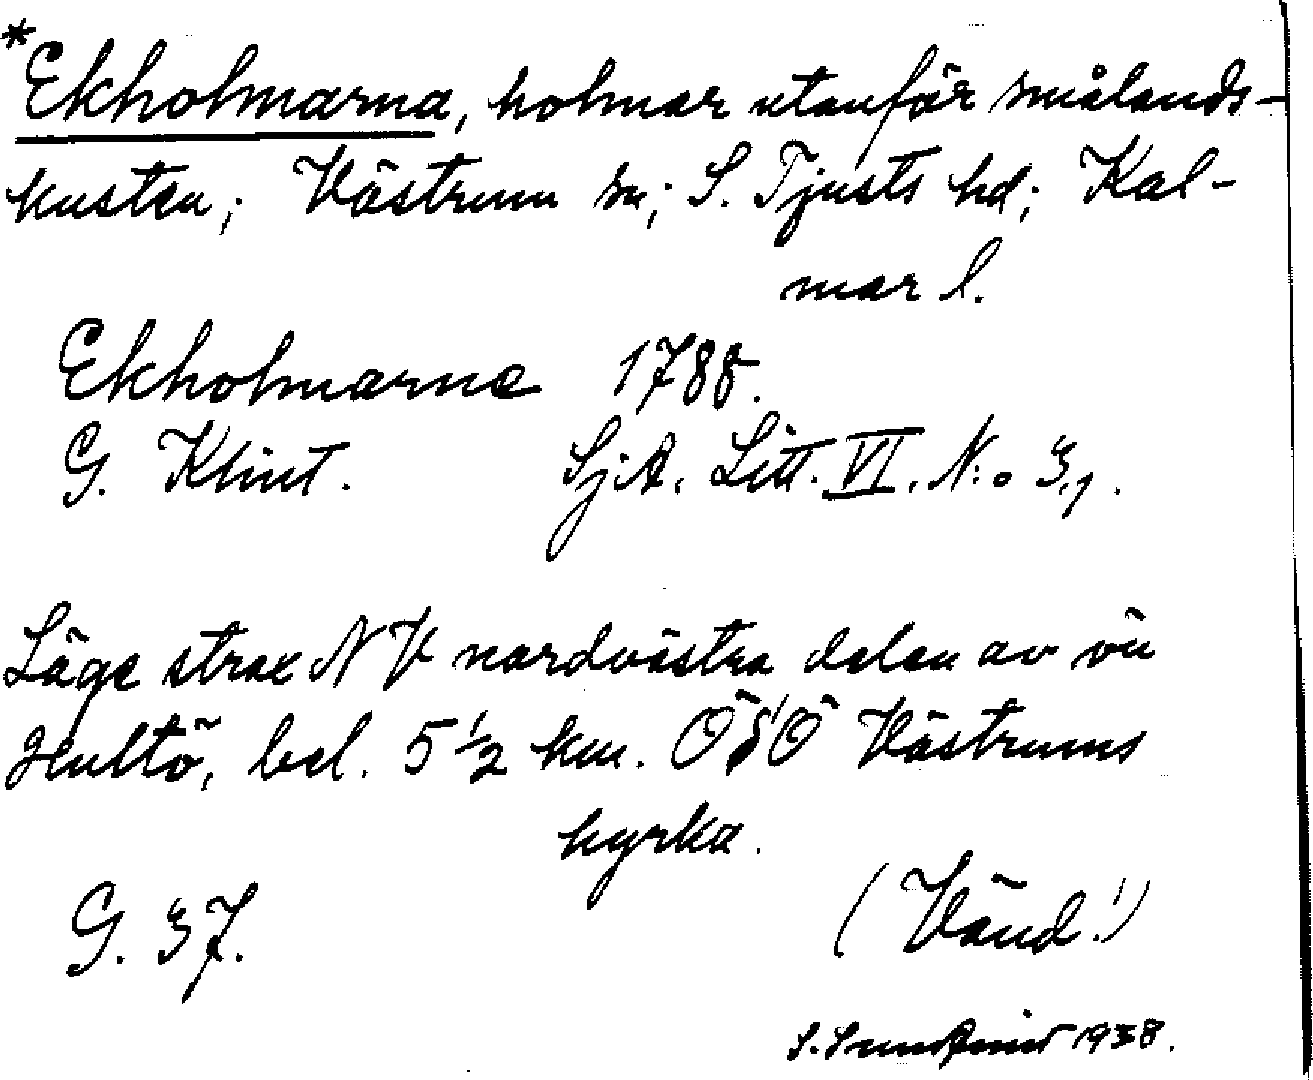 *Ekholmarna, holmar utanför smålands-
kusten; Västrum sn; S. Tjusts hd; Kal-
mar l.
Ekholmarne 1788.
G. Klint. SjA. Litt. VI. N:o 3,1.
Läge strax NV nordvästra delen av ön
Hultö, bel. 5 1/2 km. ÖSÖ Västrums
kyrka.
G. 37.
(Vänd!)
S. 1938.